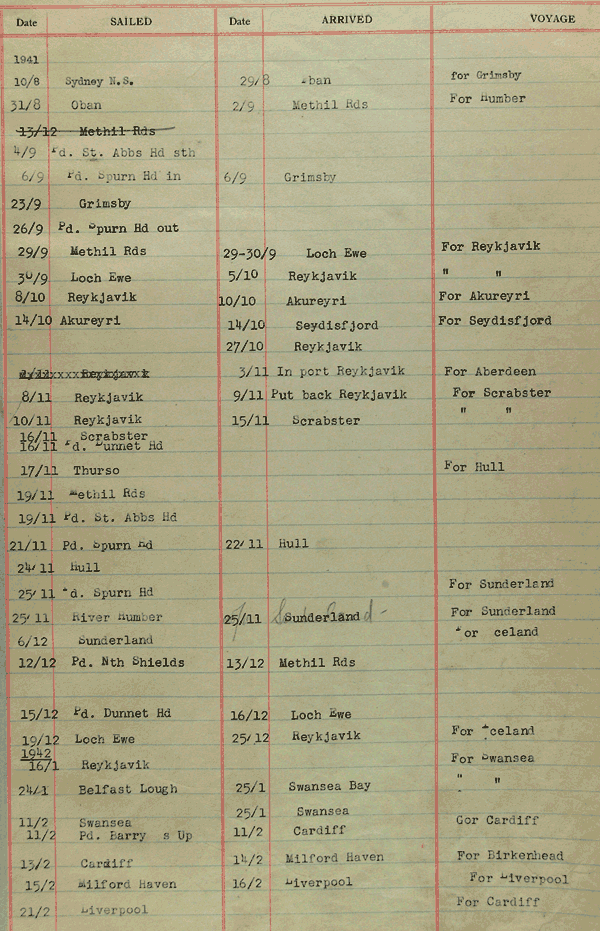 Date SAILED Date ARRIVED VOYAGE
1941
10/8 Sydney N.S. 29/8 Oban for Grimsby
31/8 Oban 2/9 Methil Rds For Humber
13/12 Methil Rds
4/9 Pd. St. Abbs Hd sth
6/9 Pd. Spurn Hd in 6/9 Grimsby
23/9 Grimsby
26/9 Pd. Spurn Hd out
29/9 Methil Rds 29-30/9 Loch Ewe For Reykjavik
30/9 Loch Ewe 5/10 Reykjavik " "
8/10 Reykjavik 10/10 Akureyri For Akureyri
14/10 Akureyri 14/10 Seydisfjord For Seydisfjord
27/10 Reykjavik
Reykjavik 3/11 In port Reykjavik For Aberdeen
8/11 Reykjavik 9/11 Put back Reykjavik For Scrabster
10/11 Reykjavik 15/11 Scrabster " "
16/11 Scrabster
16/11 Pd. Dunnet Hd
17/11 Thurso For Hull
19/11 Methil Rds
19/11 Pd. St. Abbs Hd
21/11 Pd. Spurn Hd 22/11 Hull
24/11 Hull
25/11 Pd. Spurn Hd For Sunderland
25/11 River Humber 25/11 Sunderland For Sunderland
6/12 Sunderland For Iceland
12/12 Pd. Nth Shields 13/12 Methil Rds
15/12 Pd. Dunnet Hd 16/12 Loch Ewe
19/12 Loch Ewe 25/12 Reykjavik For Iceland
1942
16/1 Reykjavik For Swansea
24/1 Belfast Lough 25/1 Swansea Bay " "
25/1 Swansea
11/2 Swansea Gor Cardiff
11/2 Pd. Barry s Up 11/2 Cardiff
13/2 Cardiff 14/2 Milford Haven For Birkenhead
15/2 Milford Haven 16/2 Liverpool For Liverpool
21/2 Liverpool For Cardiff